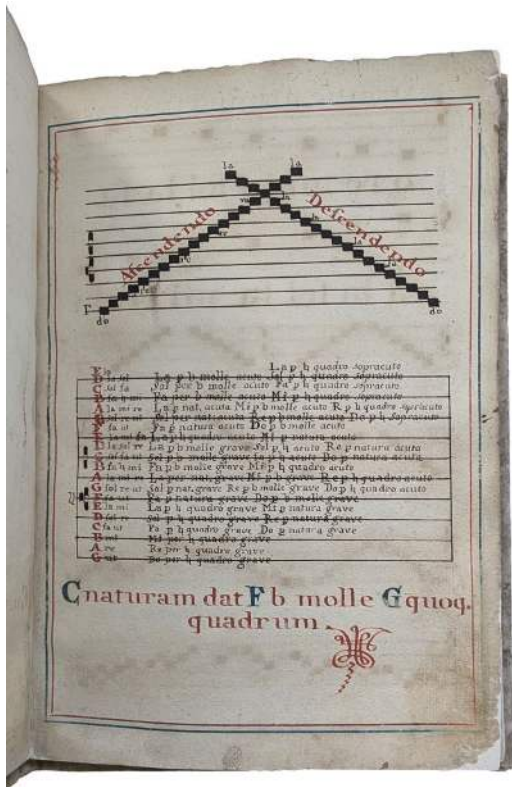 la la
Ascendendo Descendendo
Γ
do do
E la La p ♮ quadro sopracuto
D la sol La p b molle acuto Sol p ♮ quadro Sopracuto
C sol fa Sol per b molle acuto Fa p ♮ quadro sopracuto
B fa ♮ mi Fa per b molle acuto Mi p ♮ quadro Sopracuto
A la mi re La p nat. acuto Mi p b molle acuto R p ♮ quadro sopracuto
G sol re ut Sol per nat: acuto Re p b molle acuto Do p ♮ Sopracuto
F fa ut Fa p natura acuto Do p b molle acuto
E la mi La p ♮ quadro acuto Mi p natura acuto
D la sol re La p b molle grave Sol p ♮ acuto Re p natura acuta
C sol fa ut Sol p b molle grave Fa p ♮ acuto Do p natura acuta
B fa ♮ mi Fa p b molle grave Mi p ♮ quadro acuto
A la mi re La per nat. grave Mi p b grave Re p ♮ quadro acuto
G sol re ut Sol p nat. grave Re p b molle grave Do p ♮ quadro acuto
F fa ut Fa p natura grave Do p b molle grave
E la mi La p ♮ quadro grave Mi p natura grave
D sol re Sol p ♮ quadro grave Re p natura grave
C fa ut Fa p ♮ quadro grave Do p natura grave
B mi Mi per ♮ quadro grave
A re Re per ♮ quadro grave
G ut Do per ♮ quadro grave
C naturam dat F b molle G quoq.
quadrum.